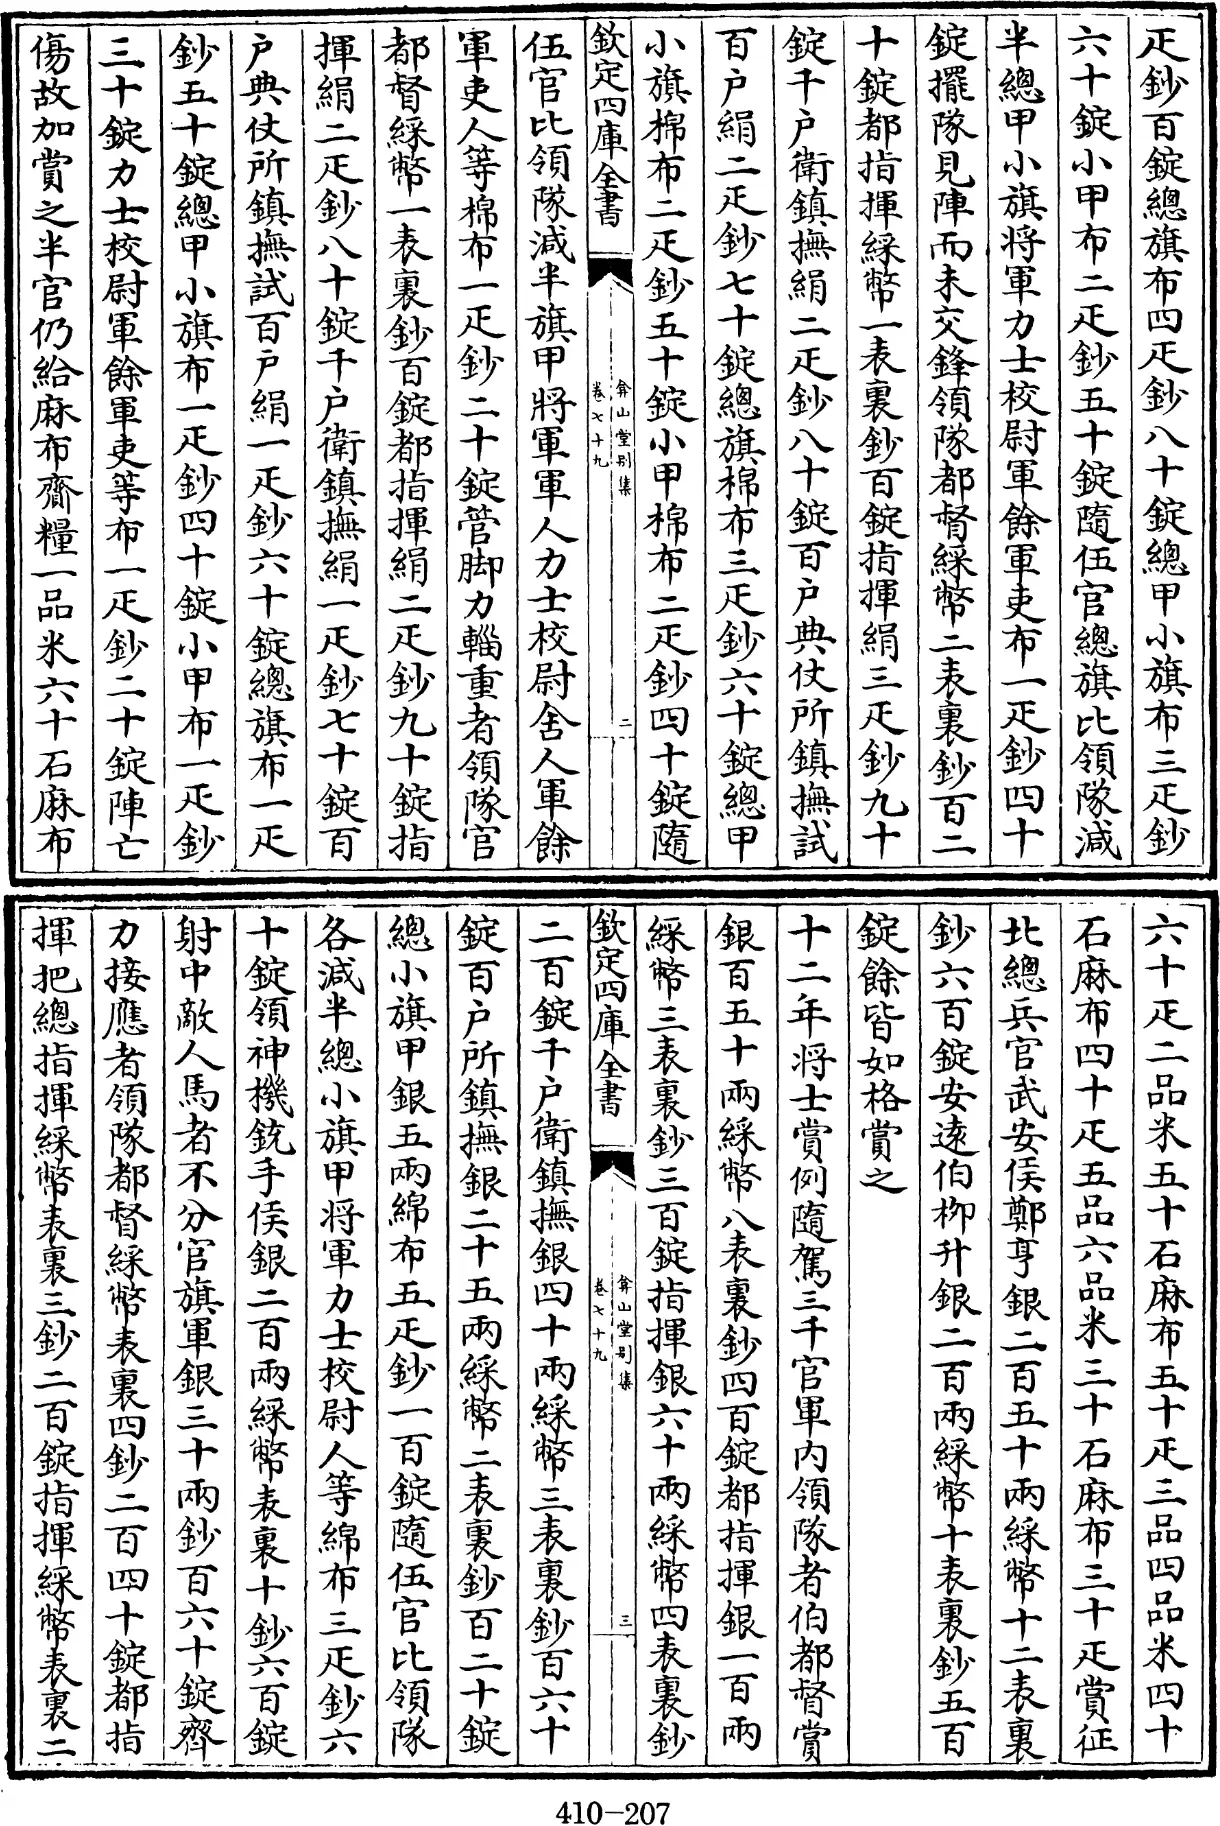 疋鈔百錠總旗布四疋鈔八十錠總甲小旗布三疋鈔
六十錠小甲布二疋鈔五十錠隨伍官總旗比領隊減
半總甲小旗将軍力士校尉軍餘軍吏布一疋鈔四十
錠擺隊見陣而未交鋒領隊都督綵幣二表裏鈔百二
十錠都指揮綵幣一表裏鈔百錠指揮絹三疋鈔九十
錠千户衛鎮撫絹二疋鈔八十錠百户典仗所鎮撫試
百户絹二疋鈔七十錠總旗棉布三疋鈔六十錠總甲
小旗棉布二疋鈔五十錠小甲棉布二疋鈔四十錠隨
欽定四庫全書
弇山堂别集
卷七十九
二
伍官比領隊減半旗甲將軍軍人力士校尉舍人軍餘
軍吏人等棉布一疋鈔二十錠管脚力輜重者領隊官
都督綵幣一表裏鈔百錠都指揮絹二疋鈔九十錠指
揮絹二疋鈔八十錠千户衛鎮撫絹一疋鈔七十錠百
户典仗所鎮撫試百户絹一疋鈔六十錠總旗布一疋
鈔五十錠總甲小旗布一疋鈔四十錠小甲布一疋鈔
三十錠力士校尉軍餘軍吏等布一疋鈔二十錠陣亡
傷故加賞之半官仍給麻布齋糧一品米六十石麻布
六十疋二品米五十石麻布五十疋三品四品米四十
石麻布四十疋五品六品米三十石麻布三十疋賞征
北總兵官武安侯鄭亨銀二百五十兩綵幣十二表裏
鈔六百錠安遠伯栁升銀二百兩綵幣十表裏鈔五百
錠餘皆如格賞之
十二年將士賞例隨駕三千官軍内領隊者伯都督賞
銀百五十兩綵幣八表裏鈔四百錠都指揮銀一百兩
綵幣三表裏鈔三百錠指揮銀六十兩綵幣四表裏鈔
欽定四庫全書
弇山堂别集
卷七十九
三
二百錠千户衛鎮撫銀四十兩綵幣三表裏鈔百六十
錠百户所鎮撫銀二十五兩綵幣二表裏鈔百二十錠
總小旗甲銀五兩綿布五疋鈔一百錠隨伍官比領隊
各減半總小旗甲将軍力士校尉人等綿布三疋鈔六
十錠領神機銃手侯銀二百兩綵幣表裏十鈔六百錠
射中敵人馬者不分官旗軍銀三十兩鈔百六十錠齊
力接應者領隊都督綵幣表裏四鈔二百四十錠都指
揮把總指揮綵幣表裏三鈔二百錠指揮綵幣表裏二
410-207